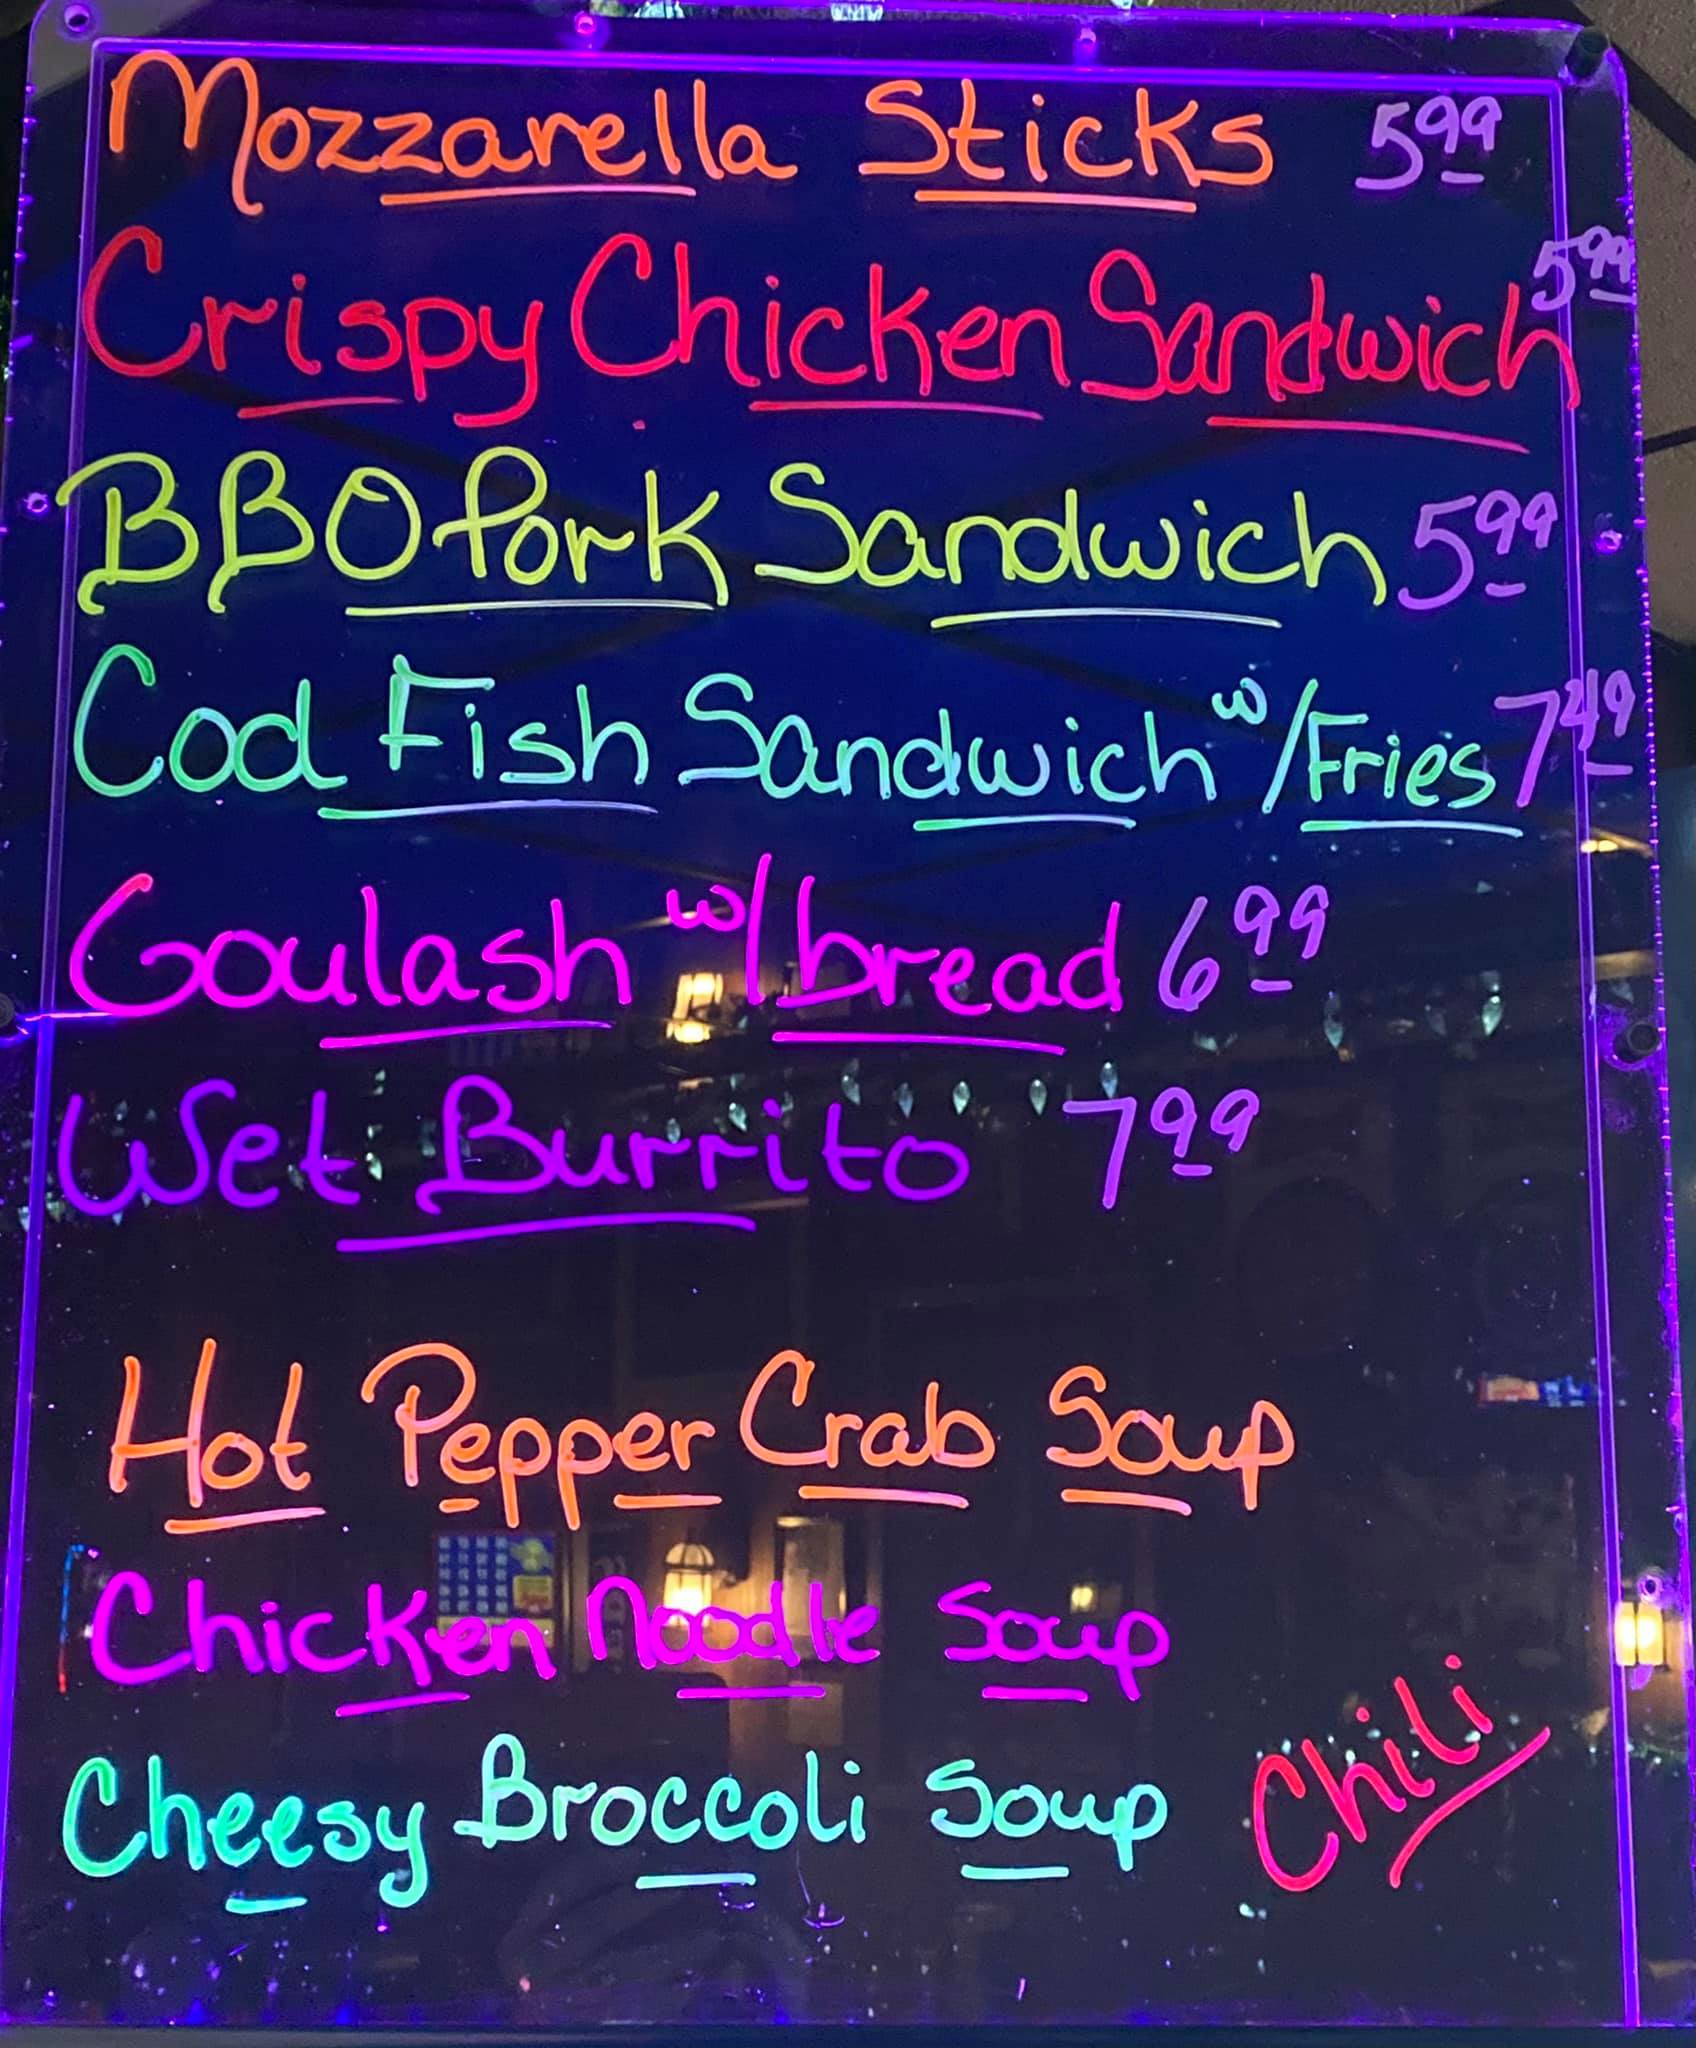 Mozzarella Sticks 5.99
Crispy Chicken Sandwich 5.99
BBQ Pork Sandwich 5.99
Cod Fish Sandwich w/Fries 7.49
Goulash w/bread 6.99
Wet Burrito 7.99
Hot Pepper Crab Soup
Chicken Noodle Soup
Cheesy Broccoli Soup
Chili